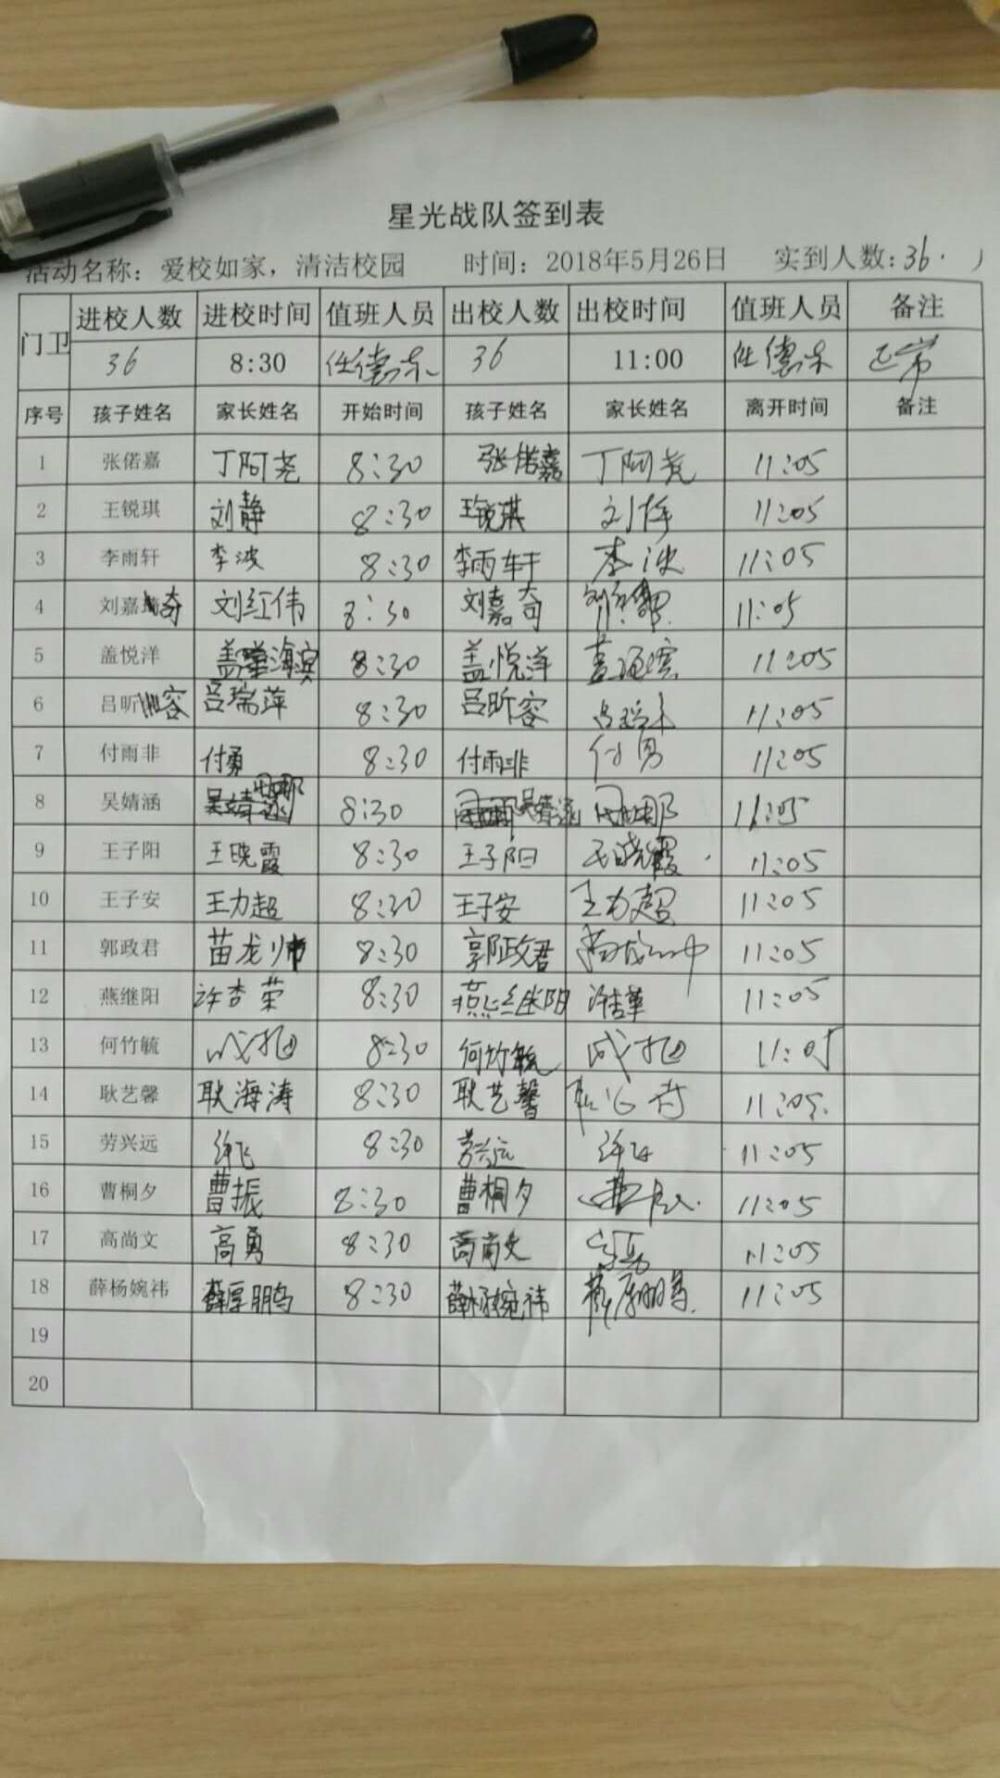 星光战队签到表
活动名称：爱校如家，清洁校园 时间：2018年5月26日 实到人数：36.
门卫 进校人数 进校时间 值班人员 出校人数 出校时间 值班人员 备注
36 8:30 任德 36 11:00 任德 正常
序号 孩子姓名 家长姓名 开始时间 孩子姓名 家长姓名 离开时间 备注
1 张偌嘉 丁阿尧 8:30 张偌嘉 丁阿尧 11:05
2 王锐琪 刘静 8:30 王锐琪 刘静 11:05
3 李雨轩 李波 8:30 李雨轩 李波 11:05
4 刘嘉奇 刘红伟 8:30 刘嘉奇 11:05
5 盖悦洋 盖海滨 8:30 盖悦洋 盖海滨 11:05
6 吕昕容 吕瑞萍 8:30 吕昕容 吕瑞萍 11:05
7 付雨非 付勇 8:30 付雨非 付勇 11:05
8 吴婧涵 8:30 吴婧涵 11:05
9 王子阳 王晓霞 8:30 王子阳 王晓霞 11:05
10 王子安 王力超 8:30 王子安 王力超 11:05
11 郭政君 苗龙帅 8:30 郭政君 苗龙帅 11:05
12 燕继阳 许杏荣 8:30 燕继阳 11:05
13 何竹毓 8:30 何竹毓 11:05
14 耿艺馨 耿海涛 8:30 耿艺馨 耿海涛 11:05.
15 劳兴远 许飞 8:30 劳兴远 许飞 11:05
16 曹桐夕 曹振 8:30 曹桐夕 曹振 11:05
17 高尚文 高勇 8:30 高尚文 高勇 11:05
18 薛杨婉祎 薛厚鹏 8:30 薛杨婉祎 薛厚鹏 11:05
19
20